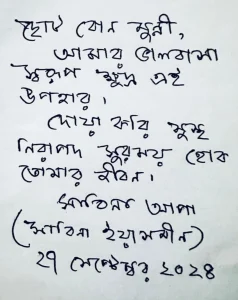 ছোট বোন মুন্নী,
আমার ভালবাসা
স্বরূপ ক্ষুদ্র এই
উপহার।
দোয়া করি সুস্থ
নিরাপদ সুরময় হোক
তোমার জীবন।
সাবিনা আপা
(সাবিনা ইয়াসমীন)
২৭ সেপ্টেম্বর ২০২৪